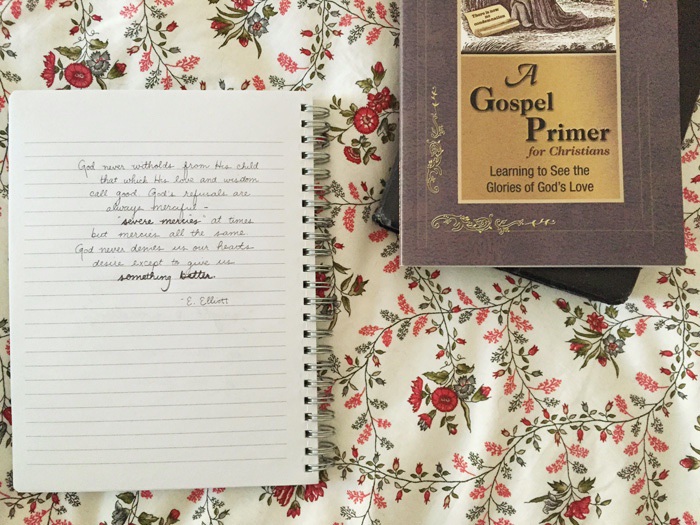 God never witholds from His child
that which His love and wisdom
call good. God's refusals are
always merciful -
"severe mercies" at times
but mercies all the same.
God never denies us our hearts
desire except to give us
something better.
- E. Elliott
A
Gospel
Primer
for Christians
Learning to See the
Glories of God's Love